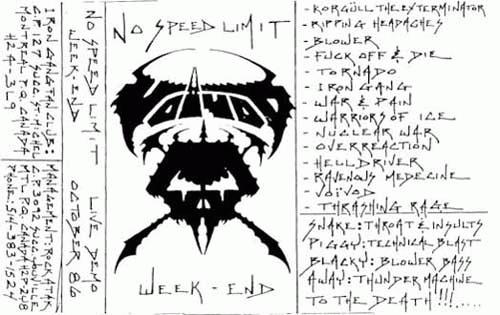 IRON GANG FAN CLUB:
C.P. 127 SUCC. ST-MICHEL
MONTREAL P.Q. CANADA
H2A-3L9
MANAGEMENT: ROCK ATAK
C.P. 3092 SUCC. YOUVILLE
MTL P.Q. CANADA
PHONE: 514-383-1524
NO SPEED LIMIT
WEEK-END
LIVE DEMO
OCTOBER 86
NO SPEED LIMIT
WEEK-END
- KORGÜLL THE EXTERMINATOR
- RIPPING HEADACHES
- BLOWER
- FUCK OFF & DIE
- TORNADO
- IRON GANG
- WAR & PAIN
- WARRIORS OF ICE
- NUCLEAR WAR
- OVERREACTION
- HELLDRIVER
- RAVENOUS MEDECINE
- VOÏVOD
- THRASHING RAGE
SNAKE: THROAT & INSULTS
PIGGY: TECHNICAL BLAST
BLACKY: BLOWER BASS
AWAY: THUNDER MACHINE
TO THE DEATH!!!....